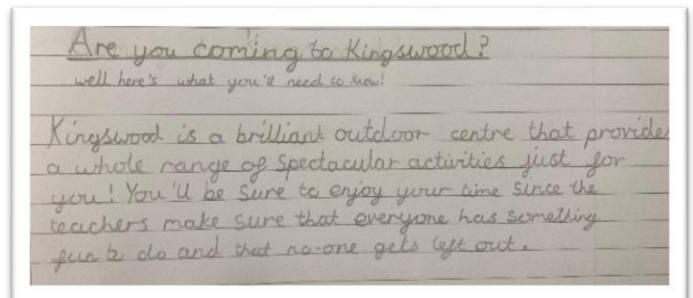 Are you coming to Kingswood?
well here's what you'll need to know!
Kingswood is a brilliant outdoor centre that provide
a whole range of spectacular activities just for
you! You'll be sure to enjoy your time since the
teachers make sure that everyone has something
fun to do and that no-one gets left out.